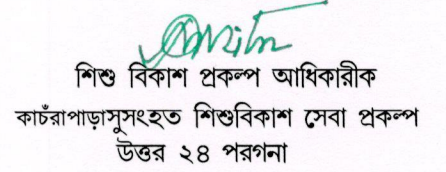 শিশু বিকাশ প্রকল্প আধিকারীক
কাচঁরাপাড়াসুসংহত শিশুবিকাশ সেবা প্রকল্প
উত্তর ২৪ পরগনা